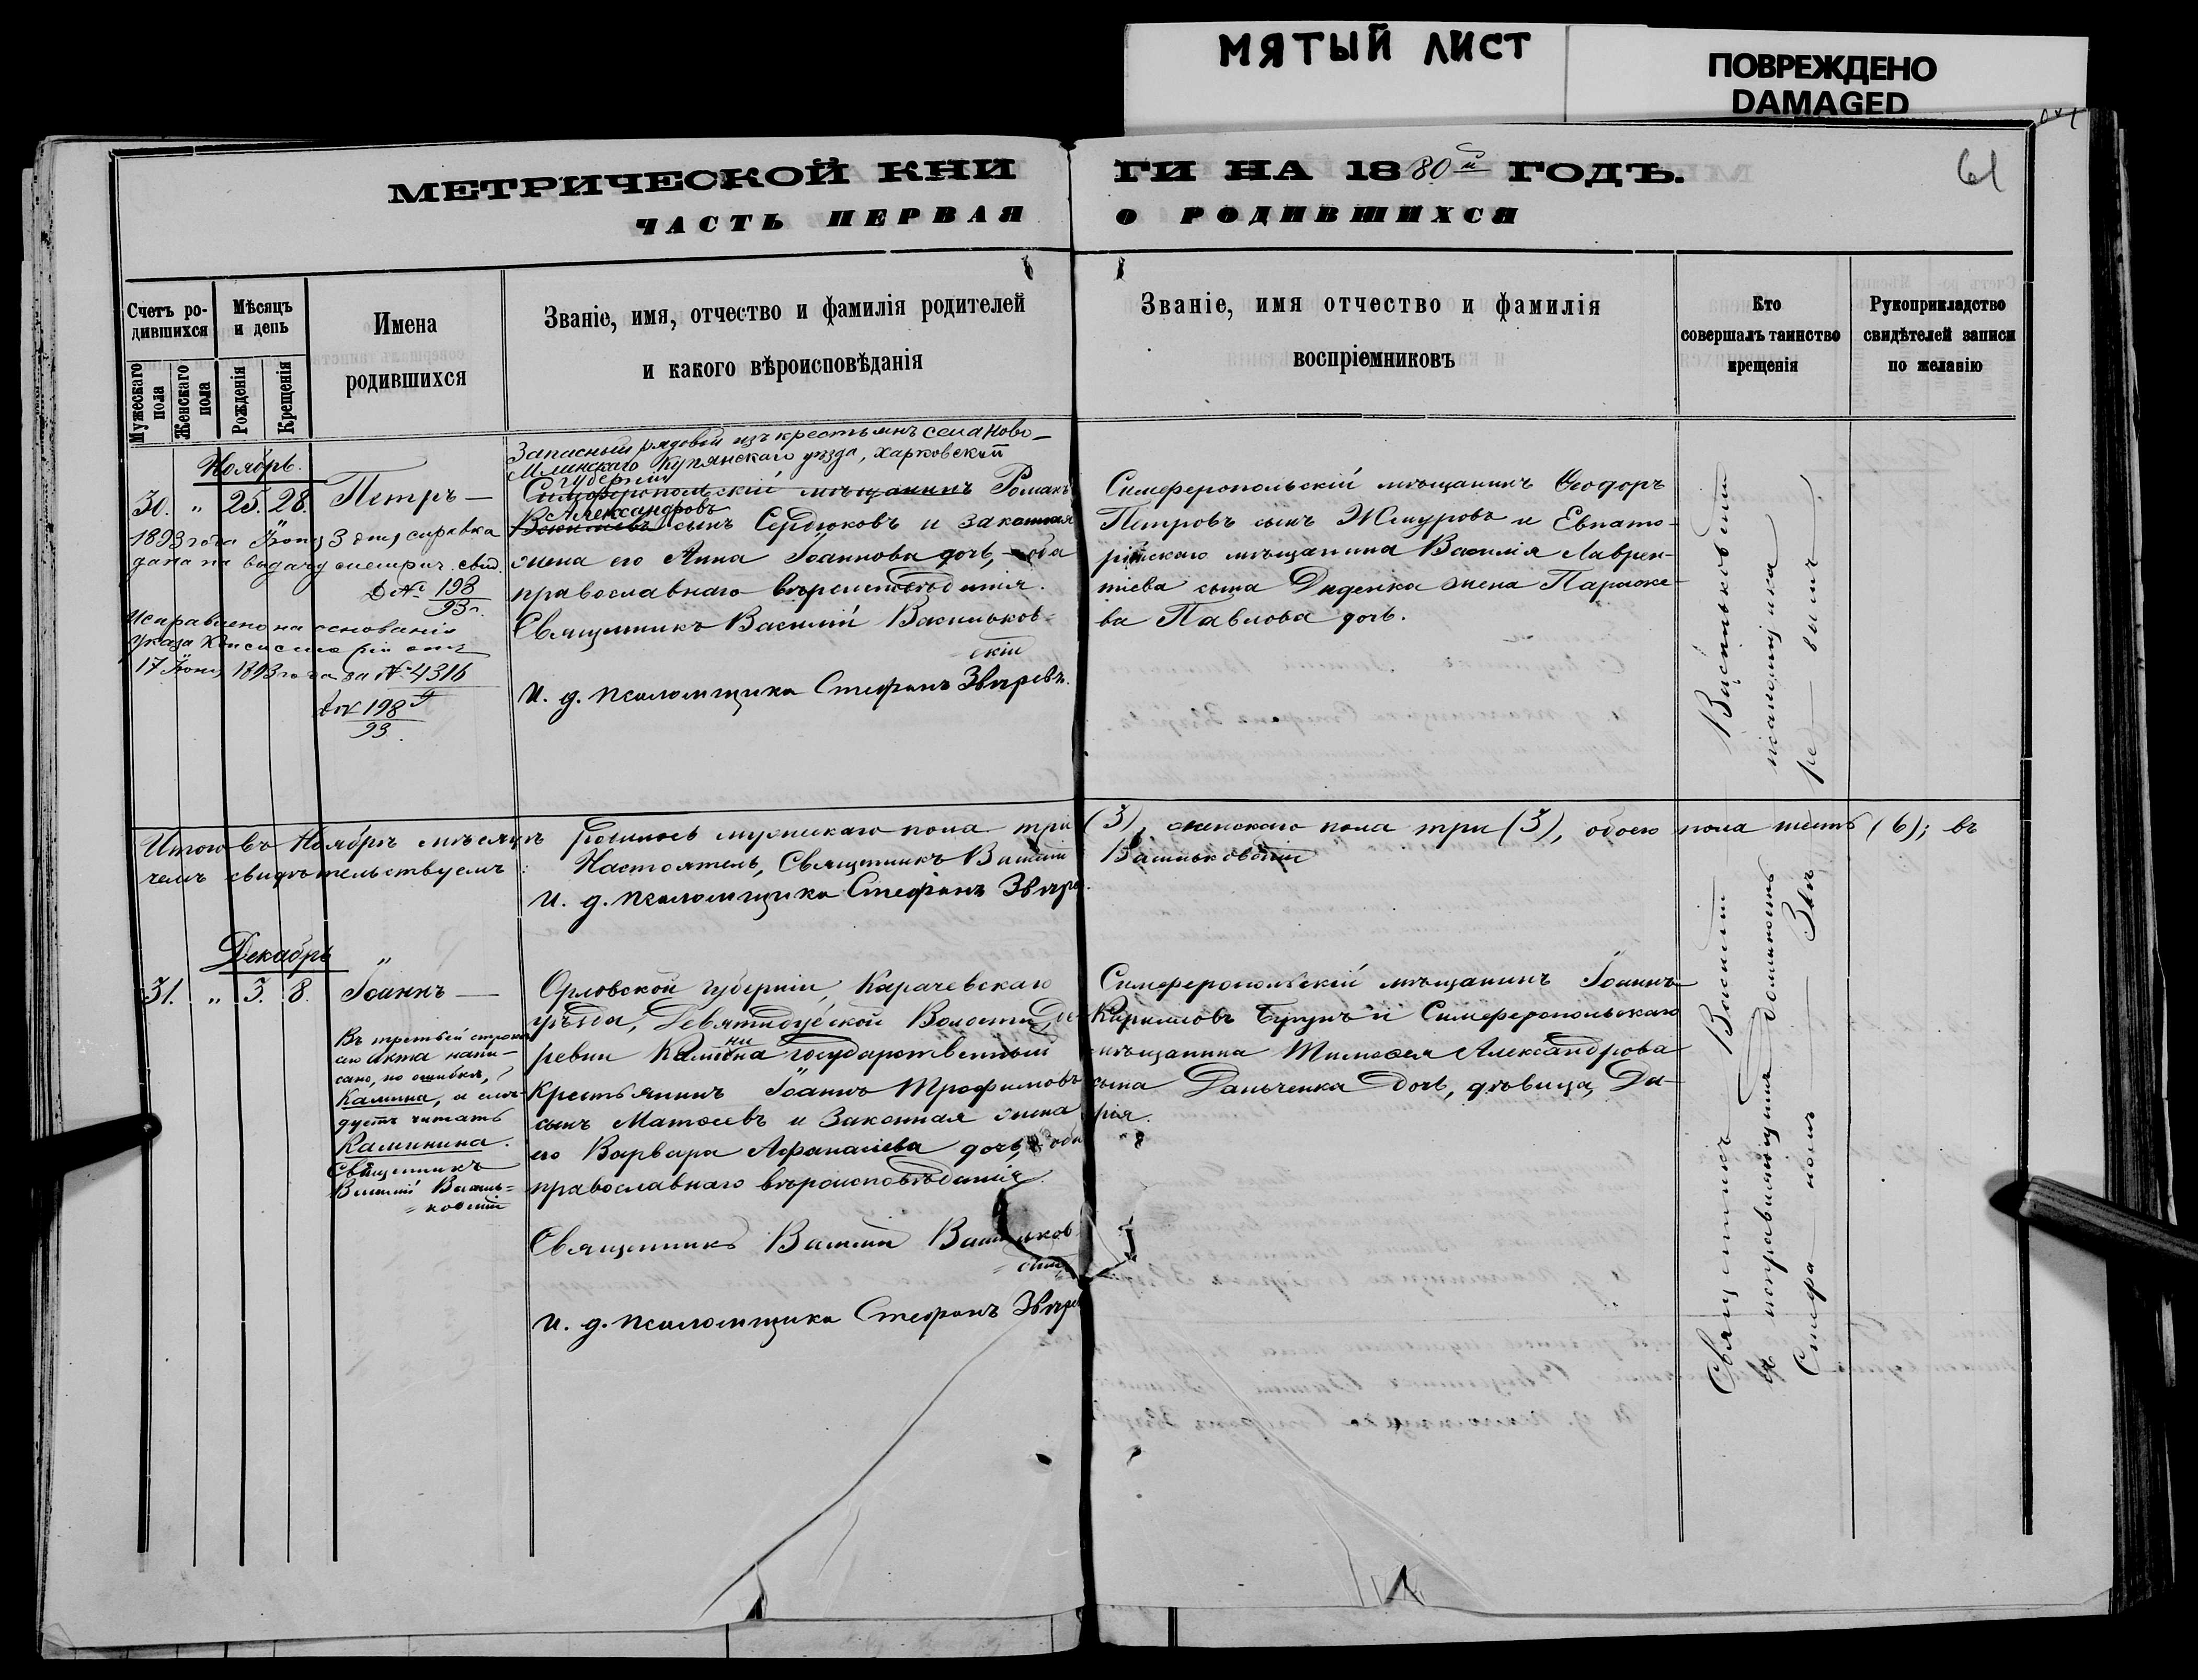 МЯТЫЙ ЛИСТ
ПОВРЕЖДЕНО
DAMAGED
61
МЕТРИЧЕСКОЙ КНИ ГИ НА 1880й ГОДЪ.
ЧАСТЬ ПЕРВАЯ О РОДИВШИХСЯ
Счетъ ро-
дившихся
Мужескаго пола
Женскаго пола
Мѣсяцъ
и день
Рожденія
Крещенія
Имена
родившихся
Званіе, имя, отчество и фамилія родителей
и какого вѣроисповѣданія
Званіе, имя отчество и фамилія
воспріемниковъ
Кто
совершалъ таинство
крещенія
Рукоприкладство
свидѣтелей записи
по желанію
Ноябрь.
30. " 25. 28. Петръ —
1893 года Іюня 3 дня справка
дана на выдачу метрич. свид.
Д № 198/93 г.
Исправлено на основаніи
указа Консисторіи отъ
17 Іюня 1893 года за № 4316
198/93
Запасный рядовой изъ крестьянъ села Ново-
Млинскаго Купянскаго уѣзда, Харковской
губерніи
Симферопольскій мѣщанинъ Романъ
Александровъ
сынъ Сердюковъ и законная
жена его Анна Іоаннова дочь, оба
православнаго вѣроисповѣданія.
Священникъ Василій Васильков-
скій
И. д. псаломщика Стефанъ Звѣревъ.
Симферопольскій мѣщанинъ Ѳеодоръ
Петровъ сынъ Жмуровъ и Евпато-
рійскаго мѣщанина Василія Лаврен-
тіева сына Диденка жена Параске-
ва Павлова дочь.
Итого въ Ноябрѣ мѣсяцѣ родилось мужескаго пола три (3), женскаго пола три (3), обоего пола шесть (6); въ
чемъ свидѣтельствуемъ: Настоятель, Священникъ Василій Васильковскій
И. д. псаломщика Стефанъ Звѣре
Декабрь
31. " 3. 8. Іоаннъ —
Въ третьей строкѣ
акта напи-
сано, по ошибкѣ,
Калина, а слѣ-
дуетъ читать
Калинина.
Священникъ
Василій Василь-
ковскій
Орловской губерніи, Карачевскаго
уѣзда, Девятидубской Волости, де-
ревни Калинина государственный
Крестьянинъ Іоаннъ Трофимовъ
сынъ Матѳеевъ и Законная жена
его Варвара Аѳанасіева дочь, оба
православнаго вѣроисповѣданія.
Священникъ Василій Васильков
скій
И. д. псаломщика Стефанъ Звѣрев
Симферопольскій мѣщанинъ Іоаннъ
Кирилловъ и Симферопольскаго
мѣщанина Тимоѳея Александрова
сына Данченка дочь, дѣвица, Да-
рія.
Священникъ Василій Васильковскій
и исправляющій должность псаломщика
Стефанъ Звѣревъ